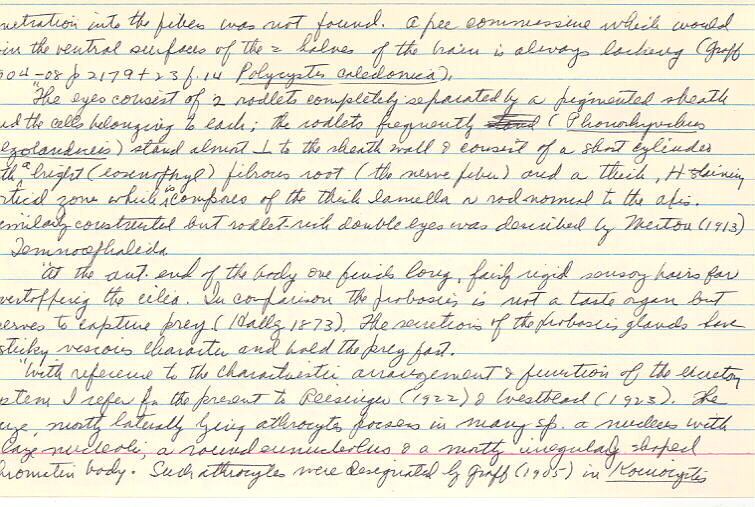 netration into the fibers was not found. A free commissure which would
in the ventral surfaces of the 2 halves of the brain is always lacking (Graff
904-08 p 2179 + 23 f. 14 Polycystis caledonica).
"The eyes consist of 2 rodlets completely separated by a pigmented sheath
nd the cells belonging to each; the rodlets frequently (Phonorhynchus
) stand almost ⊥ to the sheath wall & consist of a short cylinder
th a bright (eosinophyl) fibrous root (the nerve fiber) and a thick, H staining
rtical zone which is compares of the thick lamella n rod normal to the apis.
similarly constructed but rodlet-rich double eyes was described by Merton (1913)
Temnocephaleida
"At the ant. end of the body one finds long, fairly rigid sensory hairs far
vertopping the cilia. In comparison the proboscis is not a taste organ but
serves to capture prey (Hallez 1873). The secretions of the proboscis glands have
sticky viscous character and hold the prey fast.
"With reference to the characteristic arrangement & function of the excretory
stem I refer for the present to Reisinger (1922) & Westblad (1923). The
mostly laterally lying athrocytes possess in many sp. a nucleus with
nucleoli, a round & a mostly irregularly shaped
hromatin body. Such athrocytes were designated by Graff (1905) in